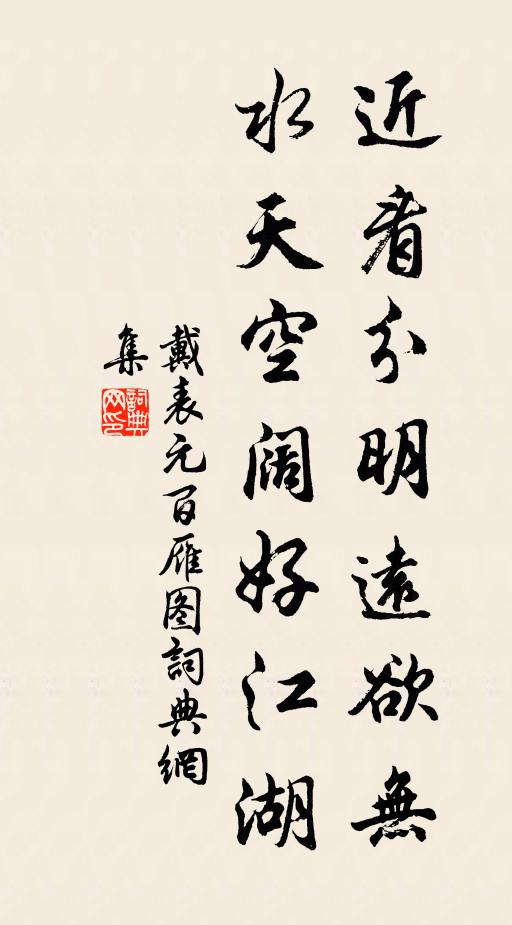 近看分明遠欲無
水天空阔好江湖
戴表元百雁图詞典網
集
詞典
网印